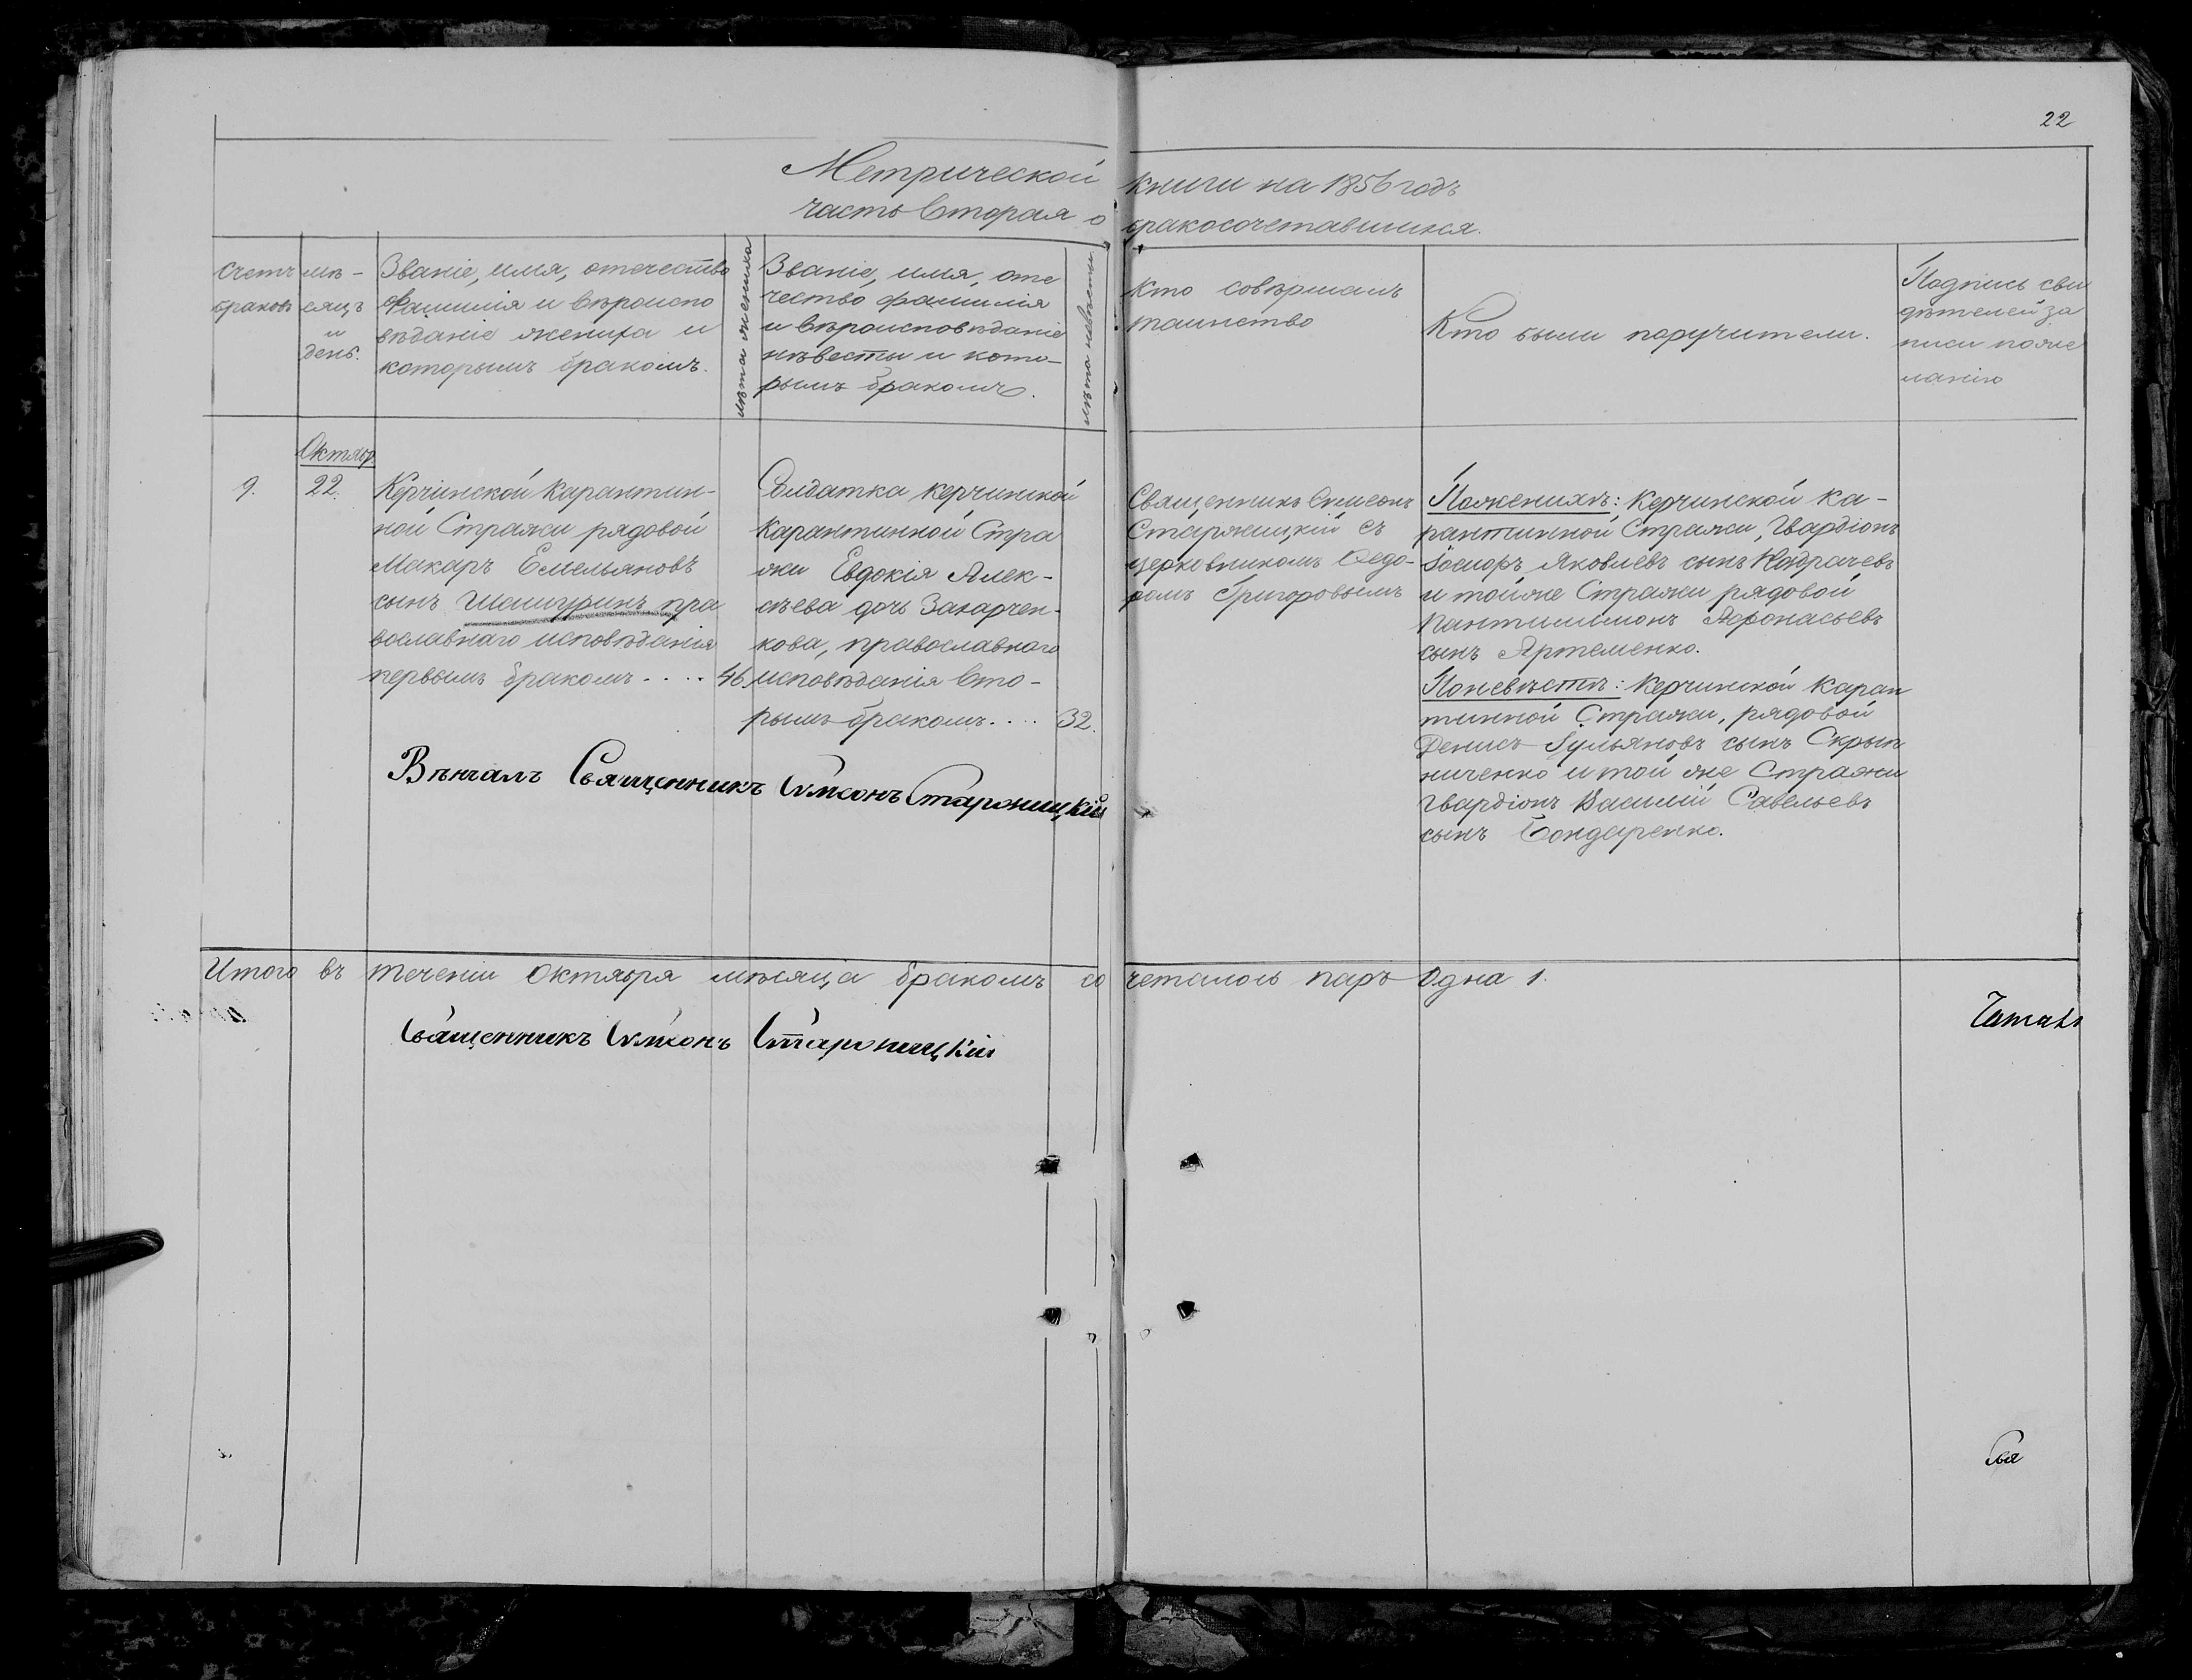 22
Метрической книги на 1856 годъ
часть вторая о бракосочетавшихся.
счетъ
браковъ
мѣ-
сяцъ
и
день.
Званіе, имя, отечество
фамилія и вѣроиспо
вѣданіе жениха и
которымъ бракомъ.
лѣта жениха
Званіе, имя, оте
чество фамилія
и вѣроисповѣданіе
нѣвесты и кото-
рымъ бракомъ.
лѣта невѣсты
кто совѣршалъ
таинство
Кто были поручители.
Подпись сви
дѣтелей за
писи пожѣ
ланію
Октябр
9.
22.
Керчинской карантин-
ной Стражи рядовой
Макаръ Емельяновъ
сынъ Шашуринъ пра
вославнаго исповѣданія
первымъ бракомъ. . . . 46.
Солдатка керчинской
карантинной Стра
жи Евдокія Алек-
сѣева дочь Захарчен-
кова, православнаго
исповѣданія вто-
рымъ бракомъ. . . . 32.
Священникъ Симеонъ
Старжицкій съ
церковникомъ Ѳедо-
ромъ Григоровымъ
Поженихѣ: Керчинской ка-
рантинной Стражи, Гвардіонъ
Яковлевъ сынъ
и тойже Стражи рядовой
Пантилимонъ Афонасьевъ
сынъ Артеменко.
Поневѣстѣ: Керчинской каран
тинной Стражи, рядовой
Денисъ Іульяновъ сынъ Скрып
ниченко и той же Стражи
Гвардіонъ Василій Савельевъ
сынъ Бондаренко.
Вѣнчалъ Священникъ Сѵмеонъ Старжицкій
Итого въ теченіи Октября мѣсяца бракомъ сочеталось паръ Одна 1.
Священникъ Сѵмеонъ Старжицкій
Читалъ
Свя